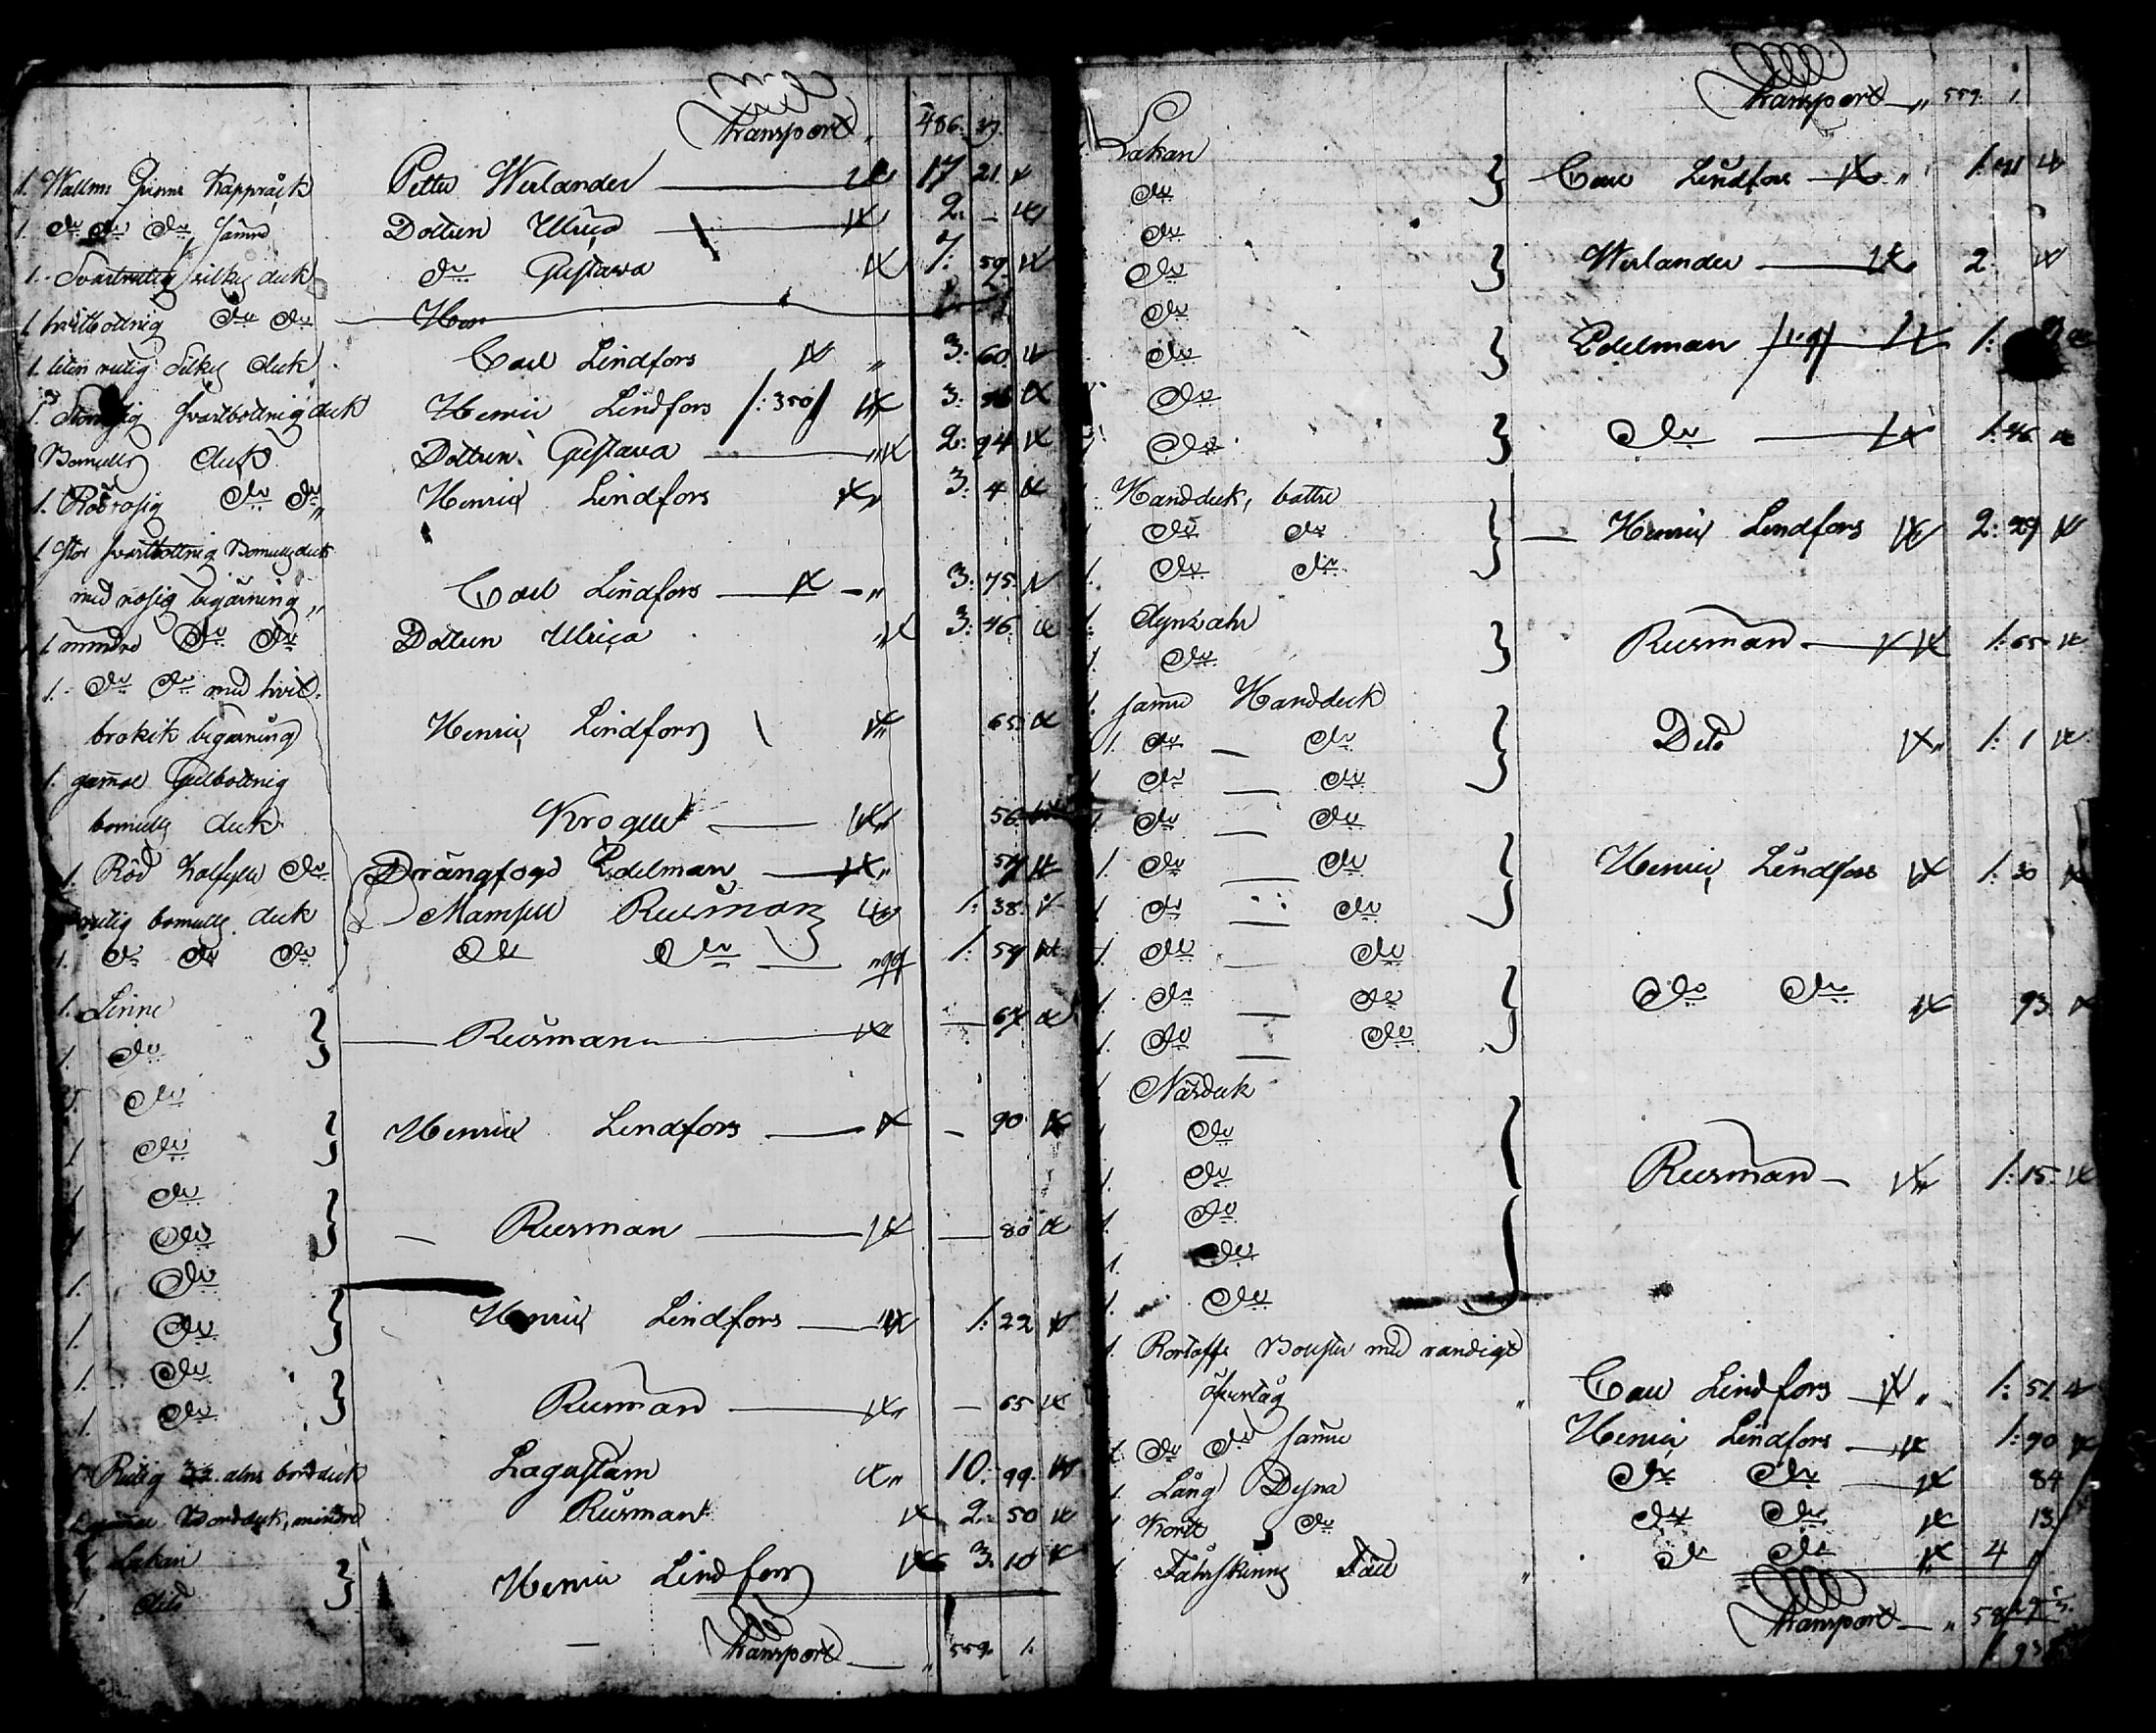 Transport „ 486: 37.
1. Wallms Kappråck Petter Werlander 17 21.
1. Do Do Do sämre Dottren Ulrica 2. –
1. Svartrutig silkes duk Do Gustava 1: 59
1 hvitbottnig Do Do
1. liten rutig Silkes duk Carl Lindfors „ 3: 60.
1. svartbottnig duk Henric Lindfors /: 350/ 3:
Bomulls duk Dottren Gustava „ 2: 94
1. Röd rosig Do Do „ Henric Lindfors „ 3: 4
1 stor svartbottnig Bomullsduk
med rosig bigärning „ Carl Lindfors – „ 3: 75.
1 mindre Do Do Dottren Ulrica „ 3: 46.
1. Do Do med hvit
brokik bigärning Henric Lindfors „ 65.
1. gammal Gulbottnig
bomulls duk Kroger „ 56.
1. Röd Do Drängfogd Edelman „ 57
rutig bomulls duk Mamsell Reusman 1: 38.
1. Do Do Do Do Do 1: 59
1. Linne
1. Do } Reusman „ – 67
Do
1 Do } Henric Lindfors – 90
1 Do
1 Do } – Reusman – 80
1. Do
1. Do } Henric Lindfors 1: 22
1. Do
1. Do } Reusman „ – 65
1. Rutig alns bordduk Lagastam „ 10: 99.
mindre Reusman 2. 50
1 Lakan
1 Dito } Henric Lindfors 3. 10
Transport „ 559. 1.
Transport „ 559. 1.
Lakan
Do } Carl Lindfors „ 1:
Do
Do } Werlander 2.
Do
Do } Edelman 1:
Do
Do } Do 1: 46
Handduk, bättre
Do Do } Henric Lindfors 2: 29
1. Do Do
1. Dynvahr
1. Do } Reusman 1: 65
1. sämre Handduk
1. Do – Do } Dito „ 1: 1
1. Do – Do
1. Do – Do
1. Do – Do } Henric Lindfors 1: 30
1. Do Do
1. Do – Do
1. Do – Do } Do Do 93
1. Do – Do
1 Näsduk
1 Do
1. Do } Reusman – 1: 15.
1. Do
1. Do
1. Do
1. Bolster med randigt
öfvertåg „ Carl Lindfors „ 1: 51
1. Do Do sämre Henric Lindfors 1: 90
1. Lång Dyna Do Do 84
1. Kort Do Do Do 13
1 Fårskinns Fäll „ Do Do 4 „
Transport „